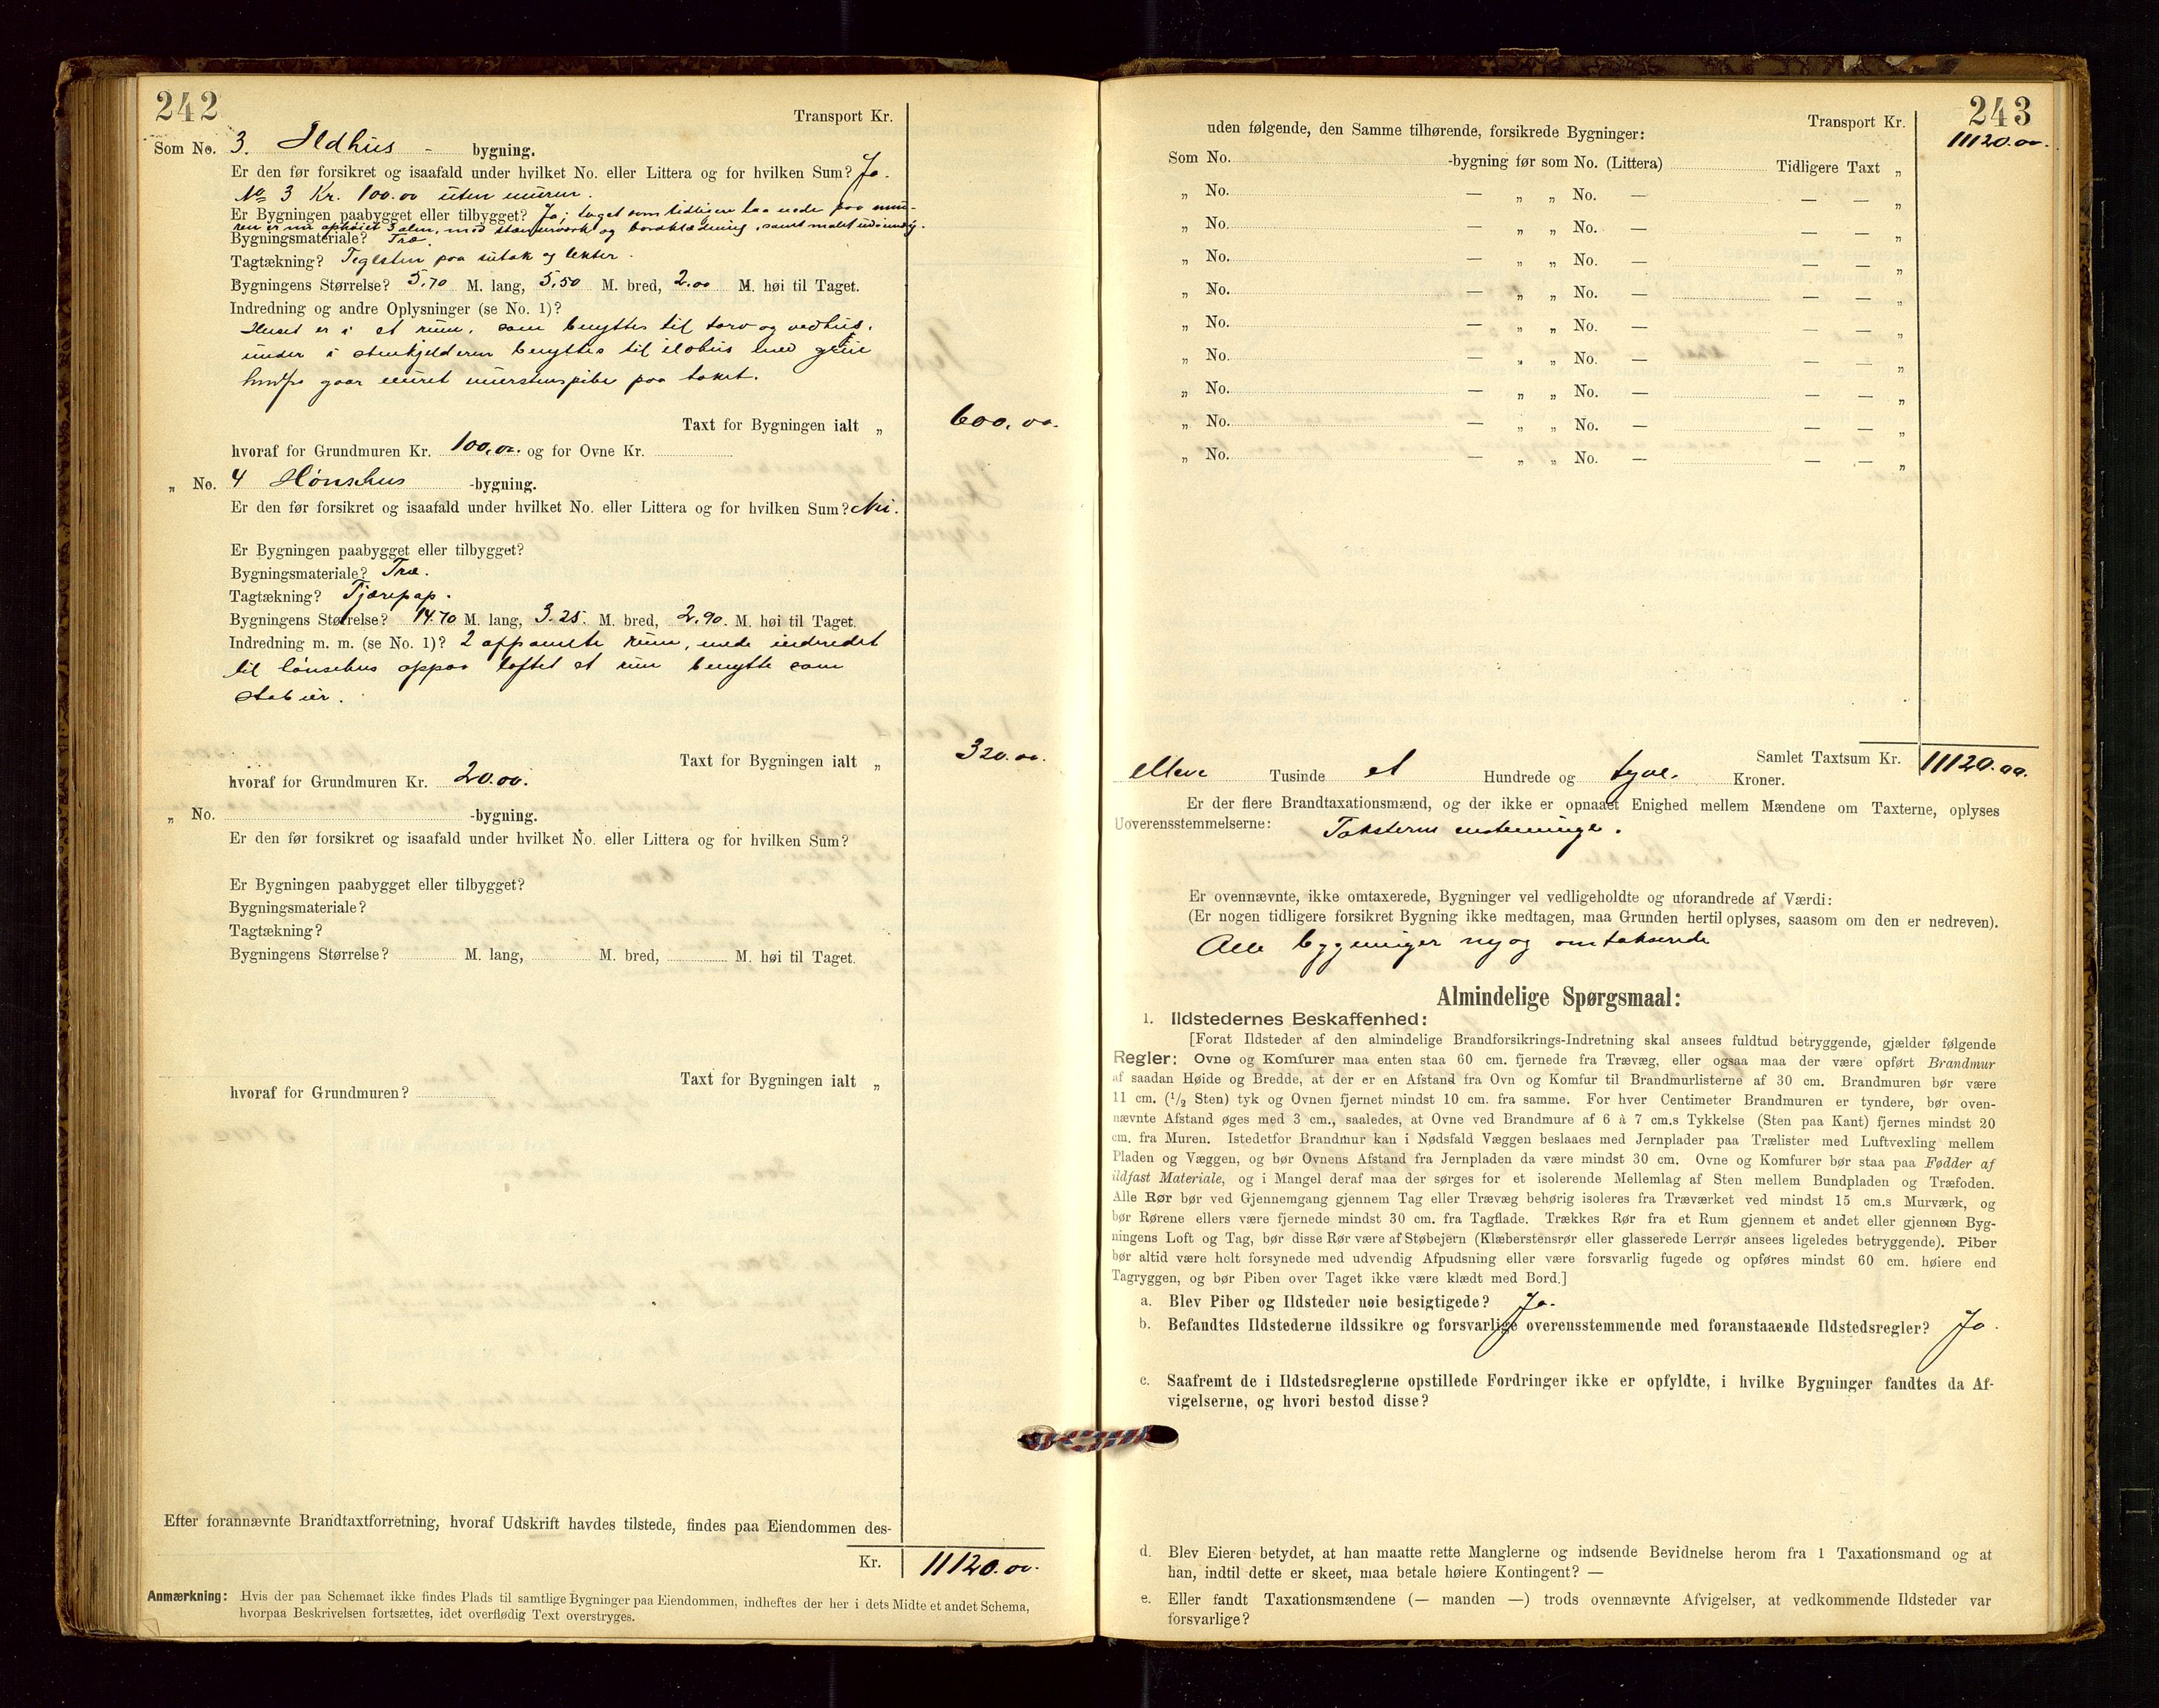 242
Transport Kr.
Som No. 3. Ildhus - bygning.
Er den før forsikret og isaafald under hvilket No. eller Littera og for hvilken Sum? Ja.
No 3 Kr. 100.00 uten muren.
Er Bygningen paabygget eller tilbygget? Ja; taget som tidligere laa nede paa mu-
ren er nu ophøiet 3 alen, med stænderverk og bordklædning, samt malet udvendig.
Bygningsmateriale? Træ.
Tagtækning? Teglsten paa sutak og lekter.
Bygningens Størrelse? 5,70 M. lang, 5,50 M. bred, 2.00 M. høi til Taget.
Indredning og andre Oplysninger (se No. 1)?
Huset er i et rum, som benyttes til torv og vedhus,
under i stenkjelderen benyttes til ildhus med grue
hvorfra gaar muret murstenspibe paa taket.
Taxt for Bygningen ialt „ 600.00.
hvoraf for Grundmuren Kr. 100.00. og for Ovne Kr.
„ No. 4 Hønsehus -bygning.
Er den før forsikret og isaafald under hvilket No. eller Littera og for hvilken Sum? Nei.
Er Bygningen paabygget eller tilbygget?
Bygningsmateriale? Træ.
Tagtækning? Tjærepap.
Bygningens Størrelse? 14.70 M. lang, 3.25. M. bred, 2.90. M. høi til Taget.
Indredning m. m. (se No. 1)? 2 rum, nede indredet
til hønsehus oppaa loftet et rum benyttes som
stabur.
Taxt for Bygningen ialt „ 320.00.
hvoraf for Grundmuren Kr. 20.00.
„ No. -bygning.
Er den før forsikret og isaafald under hvilket No. eller Littera og for hvilken Sum?
Er Bygningen paabygget eller tilbygget?
Bygningsmateriale?
Tagtækning?
Bygningens Størrelse? M. lang, M. bred, M. høi til Taget.
Taxt for Bygningen ialt „
hvoraf for Grundmuren?
Efter forannævnte Brandtaxtforretning, hvoraf Udskrift havdes tilstede, findes paa Eiendommen des-
Kr. 11120.00.
Anmærkning: Hvis der paa Schemaet ikke findes Plads til samtlige Bygninger paa Eiendommen, indheftes der her i dets Midte et andet Schema,
hvorpaa Beskrivelsen fortsættes, idet overflødig Text overstryges.
243
Transport Kr. 11120.00.
uden følgende, den Samme tilhørende, forsikrede Bygninger:
Som No. -bygning før som No. (Littera) Tidligere Taxt „
„ No. — „ „ No. — — — „
„ No. — „ „ No. — — — „
„ No. — „ „ No. — — — „
„ No. — „ „ No. — — — „
„ No. — „ „ No. — — — „
„ No. — „ „ No. — — — „
„ No. — „ „ No. — — — „
„ No. — „ „ No. — — — „
„ No. — „ „ No. — — — „
Samlet Taxtsum Kr. 11120.00.
elleve Tusinde et Hundrede og tyve. Kroner.
Er der flere Brandtaxationsmænd, og der ikke er opnaaet Enighed mellem Mændene om Taxterne, oplyses
Uoverensstemmelserne: Taksterne enstemmige.
Er ovennævnte, ikke omtaxerede, Bygninger vel vedligeholdte og uforandrede af Værdi:
(Er nogen tidligere forsikret Bygning ikke medtagen, maa Grunden hertil oplyses, saasom om den er nedreven).
Alle bygninger ny og omtakserede
Almindelige Spørgsmaal:
1. Ildstedernes Beskaffenhed:
[Forat Ildsteder af den almindelige Brandforsikrings-Indretning skal ansees fuldtud betryggende, gjælder følgende
Regler: Ovne og Komfurer maa enten staa 60 cm. fjernede fra Trævæg, eller ogsaa maa der være opført Brandmur
af saadan Høide og Bredde, at der er en Afstand fra Ovn og Komfur til Brandmurlisterne af 30 cm. Brandmuren bør være
11 cm. (1/2 Sten) tyk og Ovnen fjernet mindst 10 cm. fra samme. For hver Centimeter Brandmuren er tyndere, bør oven-
nævnte Afstand øges med 3 cm., saaledes, at Ovne ved Brandmure af 6 à 7 cm.s Tykkelse (Sten paa Kant) fjernes mindst 20
cm. fra Muren. Istedetfor Brandmur kan i Nødsfald Væggen beslaaes med Jernplader paa Trælister med Luftvexling mellem
Pladen og Væggen, og bør Ovnens Afstand fra Jernpladen da være mindst 30 cm. Ovne og Komfurer bør staa paa Fødder af
ildfast Materiale, og i Mangel deraf maa der sørges for et isolerende Mellemlag af Sten mellem Bundpladen og Træfoden.
Alle Rør bør ved Gjennemgang gjennem Tag eller Trævæg behørig isoleres fra Træværket ved mindst 15 cm.s Murværk, og
bør Rørene ellers være fjernede mindst 30 cm. fra Tagflade. Trækkes Rør fra et Rum gjennem et andet eller gjennem Byg-
ningens Loft og Tag, bør disse Rør være af Støbejern (Klæberstensrør eller glasserede Lerrør ansees ligeledes betryggende). Piber
bør altid være helt forsynede med udvendig Afpudsning eller være forsvarlig fugede og opføres mindst 60 cm. høiere end
Tagryggen, og bør Piben over Taget ikke være klædt med Bord.]
a. Blev Piber og Ildsteder nøie besigtigede? Ja.
b. Befandtes Ildstederne ildssikre og forsvarlige overensstemmende med foranstaaende Ildstedsregler? Ja.
c. Saafremt de i Ildstedsreglerne opstillede Fordringer ikke er opfyldte, i hvilke Bygninger fandtes da Af-
vigelserne, og hvori bestod disse?
d. Blev Eieren betydet, at han maatte rette Manglerne og indsende Bevidnelse herom fra 1 Taxationsmand og at
han, indtil dette er skeet, maa betale høiere Kontingent? —
e. Eller fandt Taxationsmændene (— manden —) trods ovennævnte Afvigelser, at vedkommende Ildsteder var
forsvarlige?